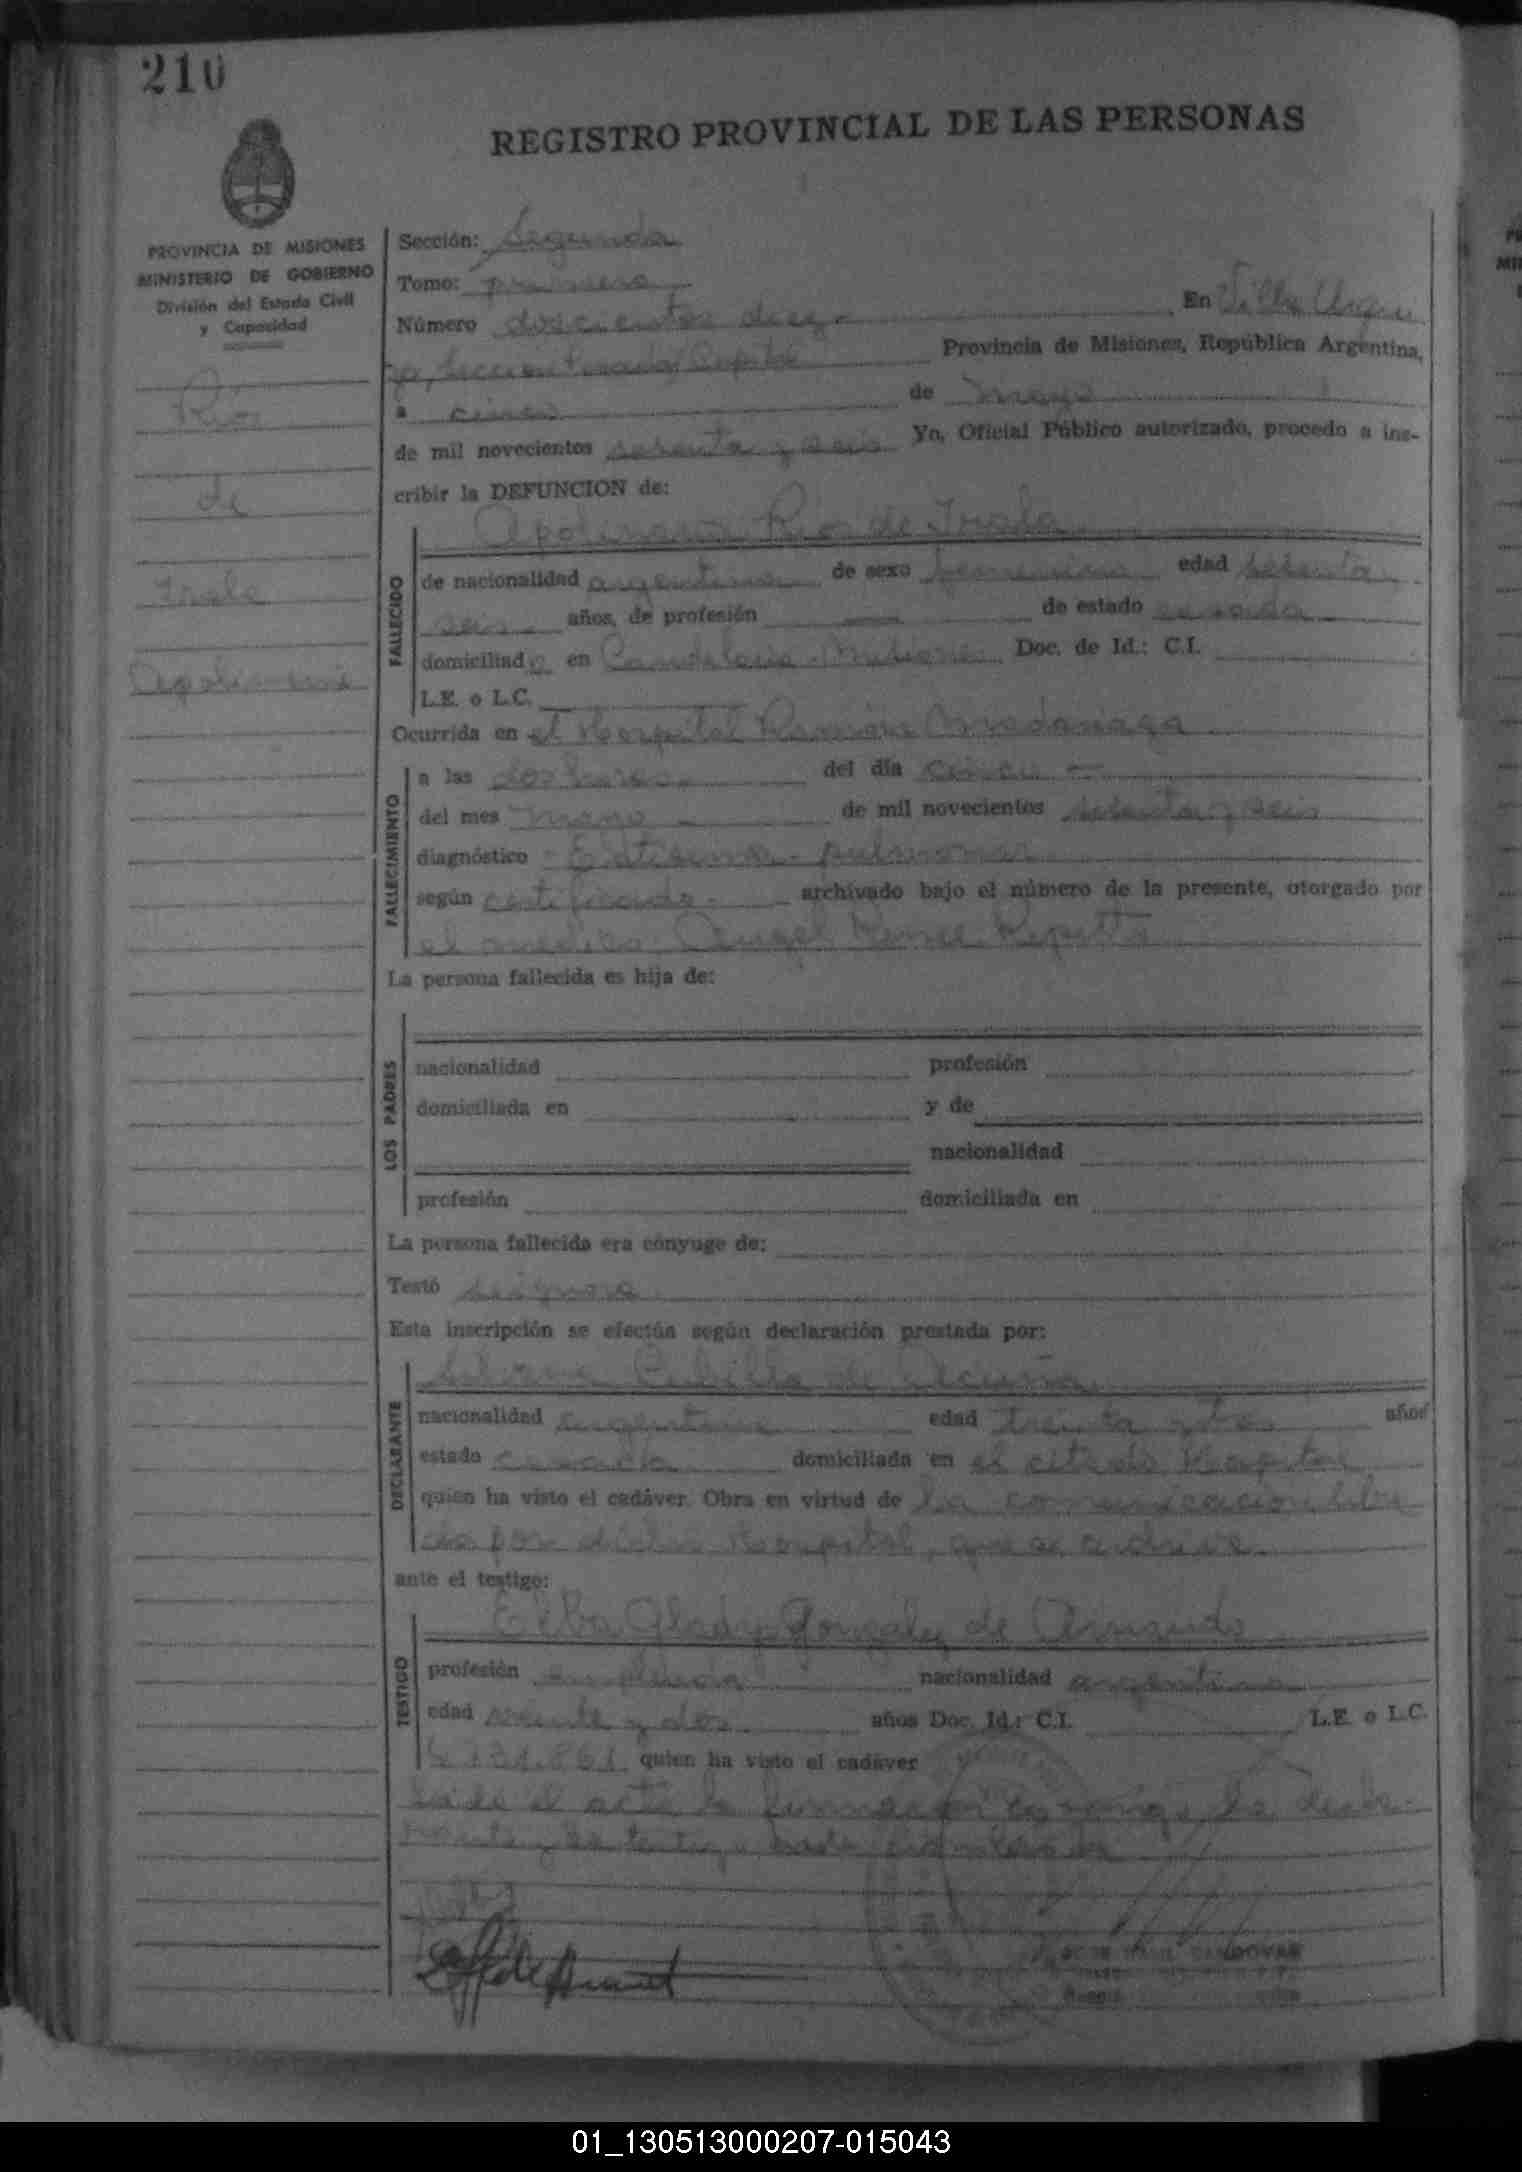 210
REGISTRO PROVINCIAL DE LAS PERSONAS
PROVINCIA DE MISIONES
MINISTERIO DE GOBIERNO
División del Estado Civil
y Capacidad
Rios
de
Irala
Sección: Segunda
Tomo: primero
Número doscientos diez.- En Villa Urqui
za, Seccion Posadas Capital Provincia de Misiones, República Argentina,
a cinco de mayo
de mil novecientos setenta y seis Yo, Oficial Público autorizado, procedo a ins-
cribir la DEFUNCION de:
Apolinaria Rios de Irala
FALLECIDO
de nacionalidad argentina de sexo femenino edad setenta y
seis años, de profesión de estado casada
domiciliada en Candelaria - Misiones Doc. de Id.: C.I.
L.E. o L.C.
Ocurrida en el Hospital Ramón Madariaga
FALLECIMIENTO
a las dos horas. del día cinco
del mes mayo de mil novecientos setenta y seis
diagnóstico Enfisema pulmonar
según certificado archivado bajo el número de la presente, otorgado por
el medico Angel Repetto
La persona fallecida es hija de:
LOS PADRES
nacionalidad profesión
domiciliada en y de
nacionalidad
profesión domiciliada en
La persona fallecida era cónyuge de:
Testó se ignora
Esta inscripción se efectúa según declaración prestada por:
DECLARANTE
Cubilla de Acuña
nacionalidad argentina edad treinta y tres años
estado casada domiciliada en el citado Hospital
quien ha visto el cadáver. Obra en virtud de la comunicacion libra
da por dicho Hospital, que se archiva.
ante el testigo:
Elba Gladys Gonzalez de
TESTIGO
profesión empleada nacionalidad argentina
edad veinte y dos años Doc. Id.: C.I. L.E. o L.C.
quien ha visto el cadáver
Leida el acta la firman conmigo la decla-
rante y la testigo
01_130513000207-015043